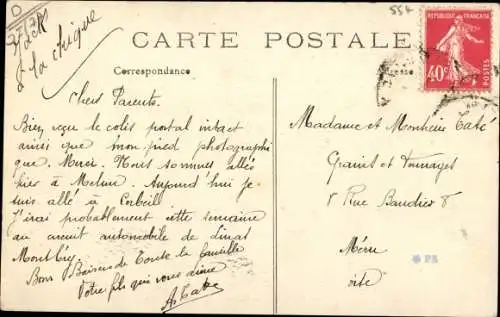 554
CARTE POSTALE
Correspondance
REPUBLIQUE FRANÇAISE
40c
POSTES
à la chique
Chers Parents.
Bien reçu le colis postal intact
ainsi que mon pied photographi
que. Merci. Nous sommes allés
hier à Melun. Aujourd'hui je
suis allé à Corbeil
J'irai probablement cette semaine
au circuit automobile de Linas
Montlhéry
Bons Baisers de Toute la famille
Votre fils qui vous aime
Madame et Monsieur
Grains et Fourrages
8 Rue Baudier 8
Méru
Oise
PS